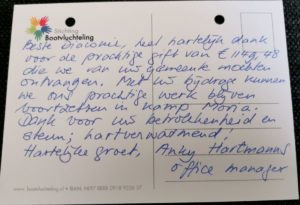 Stichting
Bootvluchteling
Beste Diaconie, heel hartelijk dank
voor de prachtige gift van €
die we van uw gemeente mochten
ontvangen. Met uw bijdrage kunnen
we ons prachtige werk blijven
voortzetten in kamp Moria.
Dank voor uw betrokkenheid en
steun; hartverwarmend!
Hartelijke groet, Anky Hartmanns
office manager
www.bootvluchteling.nl • IBAN: NL97 RBRB 0918 9326 37